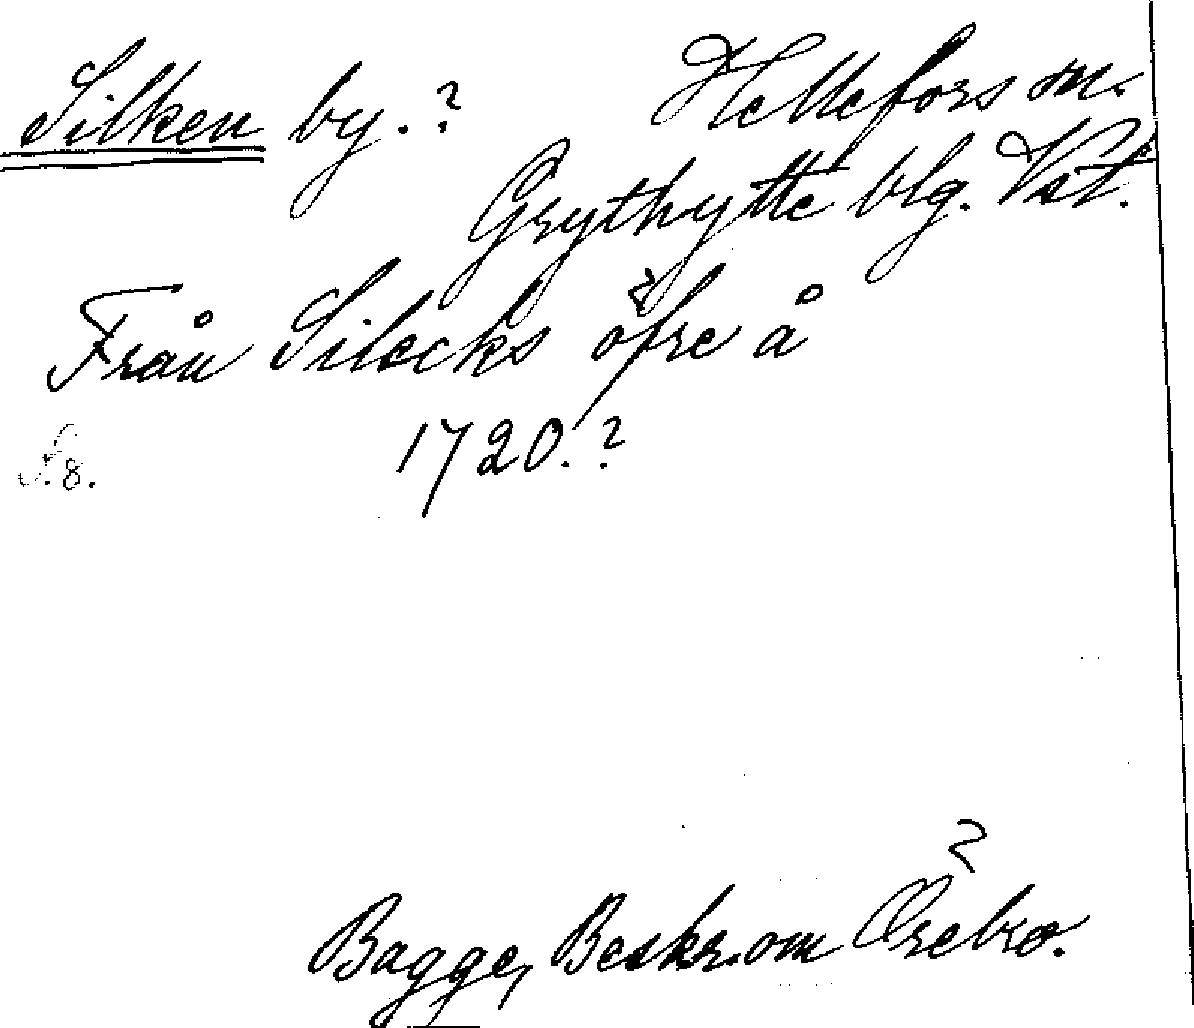 Silken by.? Hellefors sn.
Grythytte blg. Vst.
Från Silecks öfre å
1720.?
s. 8.
Bagge, Beskr. om Örebro.